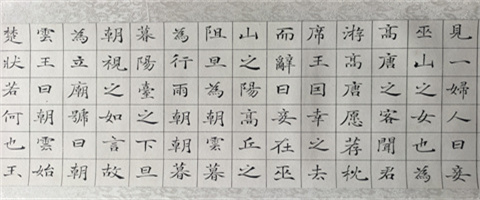 見一婦人曰妾
巫山之女也為
高唐之客聞君
游高唐愿荐枕
席王因幸之去
而辭曰妾在巫
山之陽高丘之
阻旦為朝雲暮
為行雨朝朝暮
暮陽臺之下旦
朝視之如言故
為立廟號曰朝
雲王曰朝雲始
楚狀若何也王